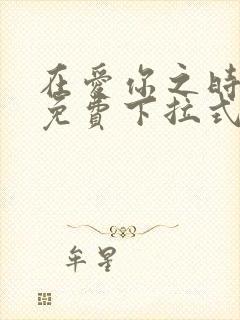 在爱你之时
免費下拉式
牟星